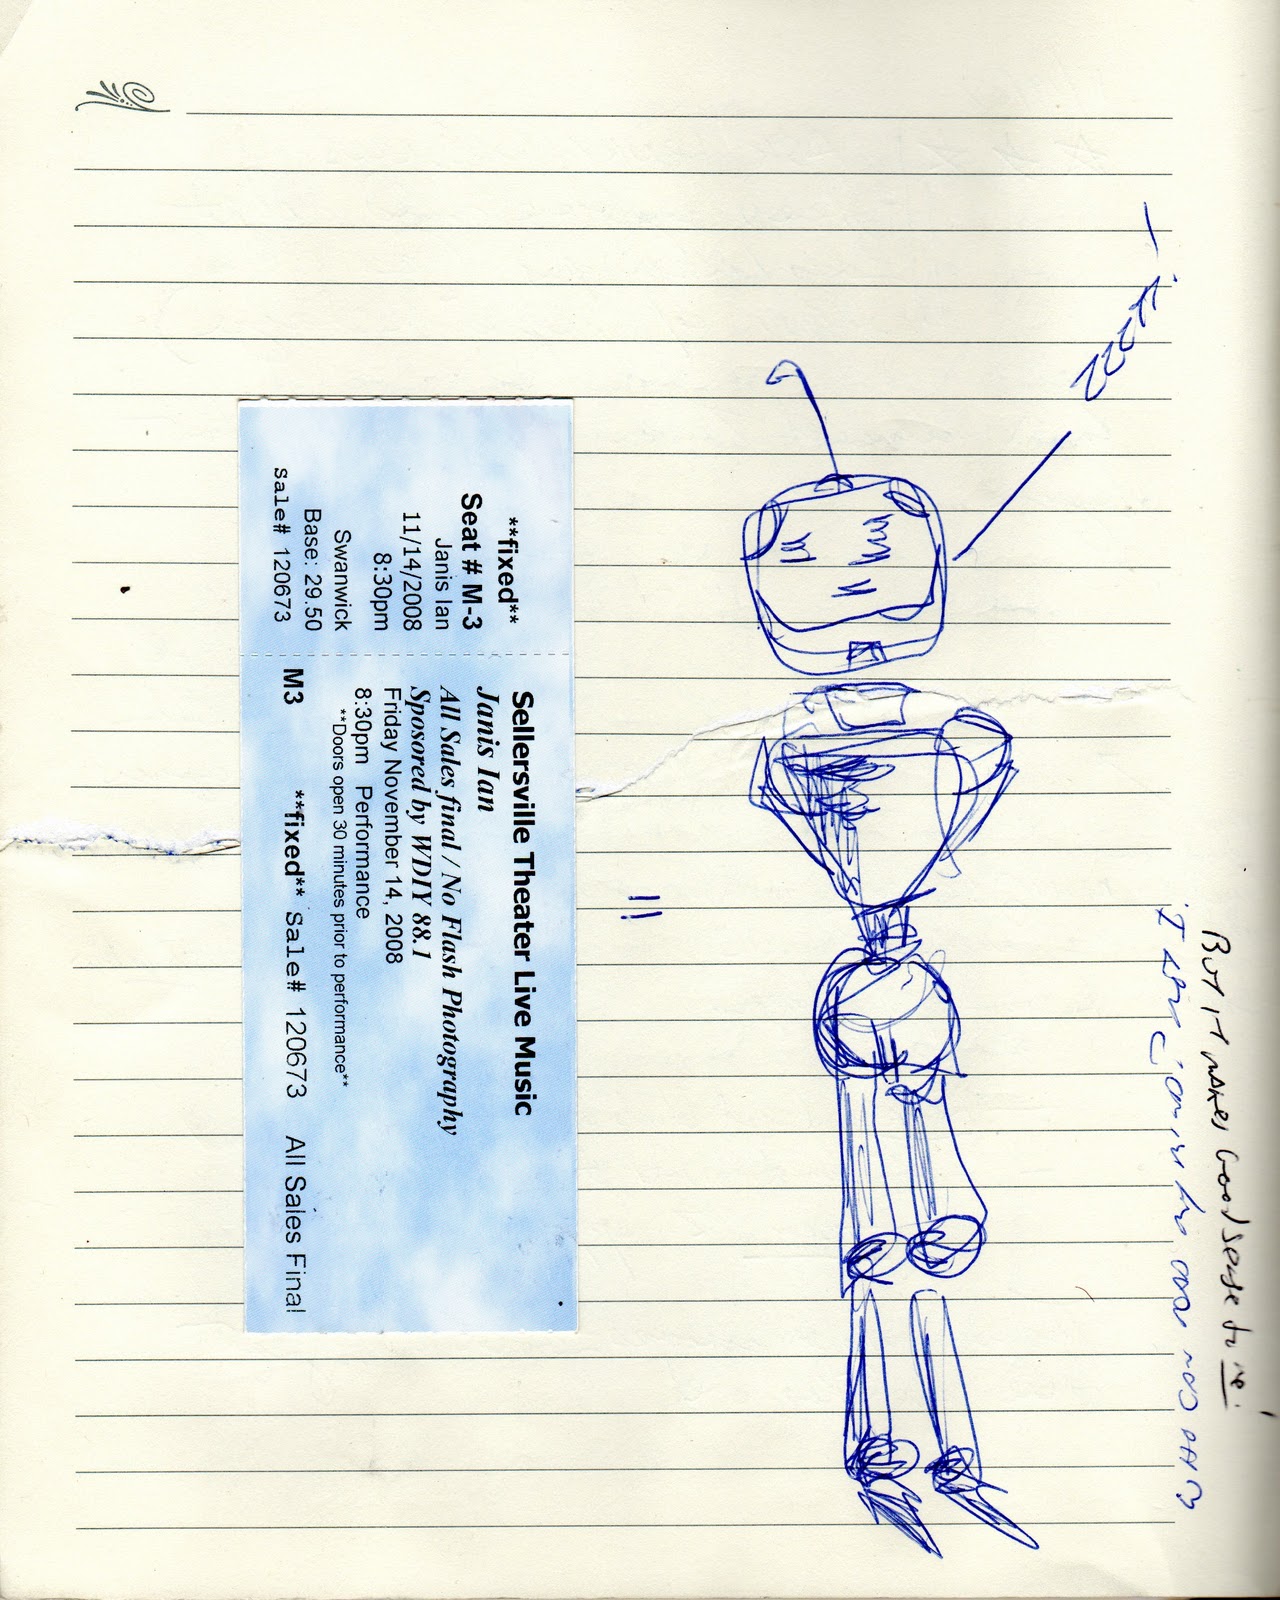 **fixed**
Seat # M-3
Janis Ian
11/14/2008
8:30pm
Swanwick
Base: 29.50
sale# 120673
Sellersville Theater Live Music
Janis Ian
All Sales final / No Flash Photography
Sposored by WDIY 88.1
Friday November 14, 2008
8:30pm Performance
**Doors open 30 minutes prior to performance**
M3 **fixed** sale# 120673 All Sales Final
But it makes Good sense to me.